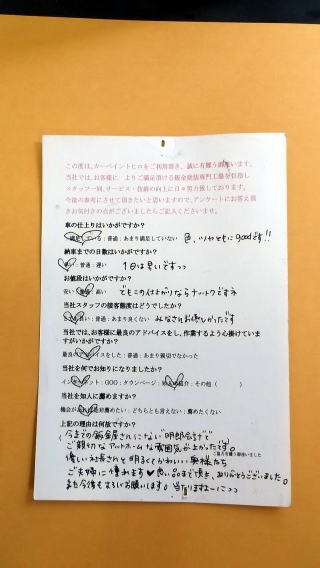 この度は、カーペイントヒロをご利用頂き、誠に有難う御座います。
当社では、お客様に よりご満足頂ける鈑金塗装専門工場を目指し
スタッフ一同、サービス・技術の向上に日々努力致しております。
今後の参考にさせて頂きたいと思いますので、アンケートにお答え頂
きお気付きの点がございましたらご記入くださいませ。
車の仕上りはいかがですか?
満足している:普通:あまり満足していない 色、ツヤともにgoodです!!
納車までの日数はいかがですか?
早い:普通:遅い 1日は早いですっっ
お値段はいかがですか?
安い:普通:高い でもこの仕上がりならナットクですネ
当社スタッフの接客態度はどうでしたか?
良い:普通:あまり良くない みなさんお優しかったです
当社では、お客様に最良のアドバイスをし、作業するよう心掛けていま
すがいかがですか?
最良のアドバイスをした:普通:あまり親切でなかった
当社を何でお知りになりましたか?
インターネット:GOO:タウンページ:知人の紹介:その他( )
当社を知人に薦めますか?
機会があれば是非薦めたい:どちらとも言えない:薦めたくない
上記の理由は何故ですか?
今までの鈑金屋さんにない明朗会計で
ご親切なアットホームな雰囲気が良かったです。
ご協力有難う御座いました
優しい社長さんと明るくてかわいい奥様たち
ご夫婦に憧れます♥ 良い品まで頂き、ありがとうございました。
また今後もよろしくお願いします。